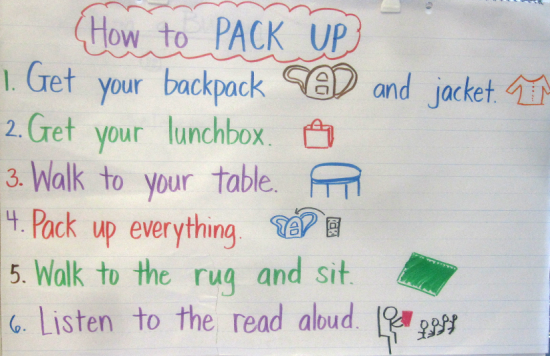 How to PACK UP
1. Get your backpack and jacket.
2. Get your lunchbox.
3. Walk to your table.
4. Pack up everything.
5. Walk to the rug and sit.
6. Listen to the read aloud.